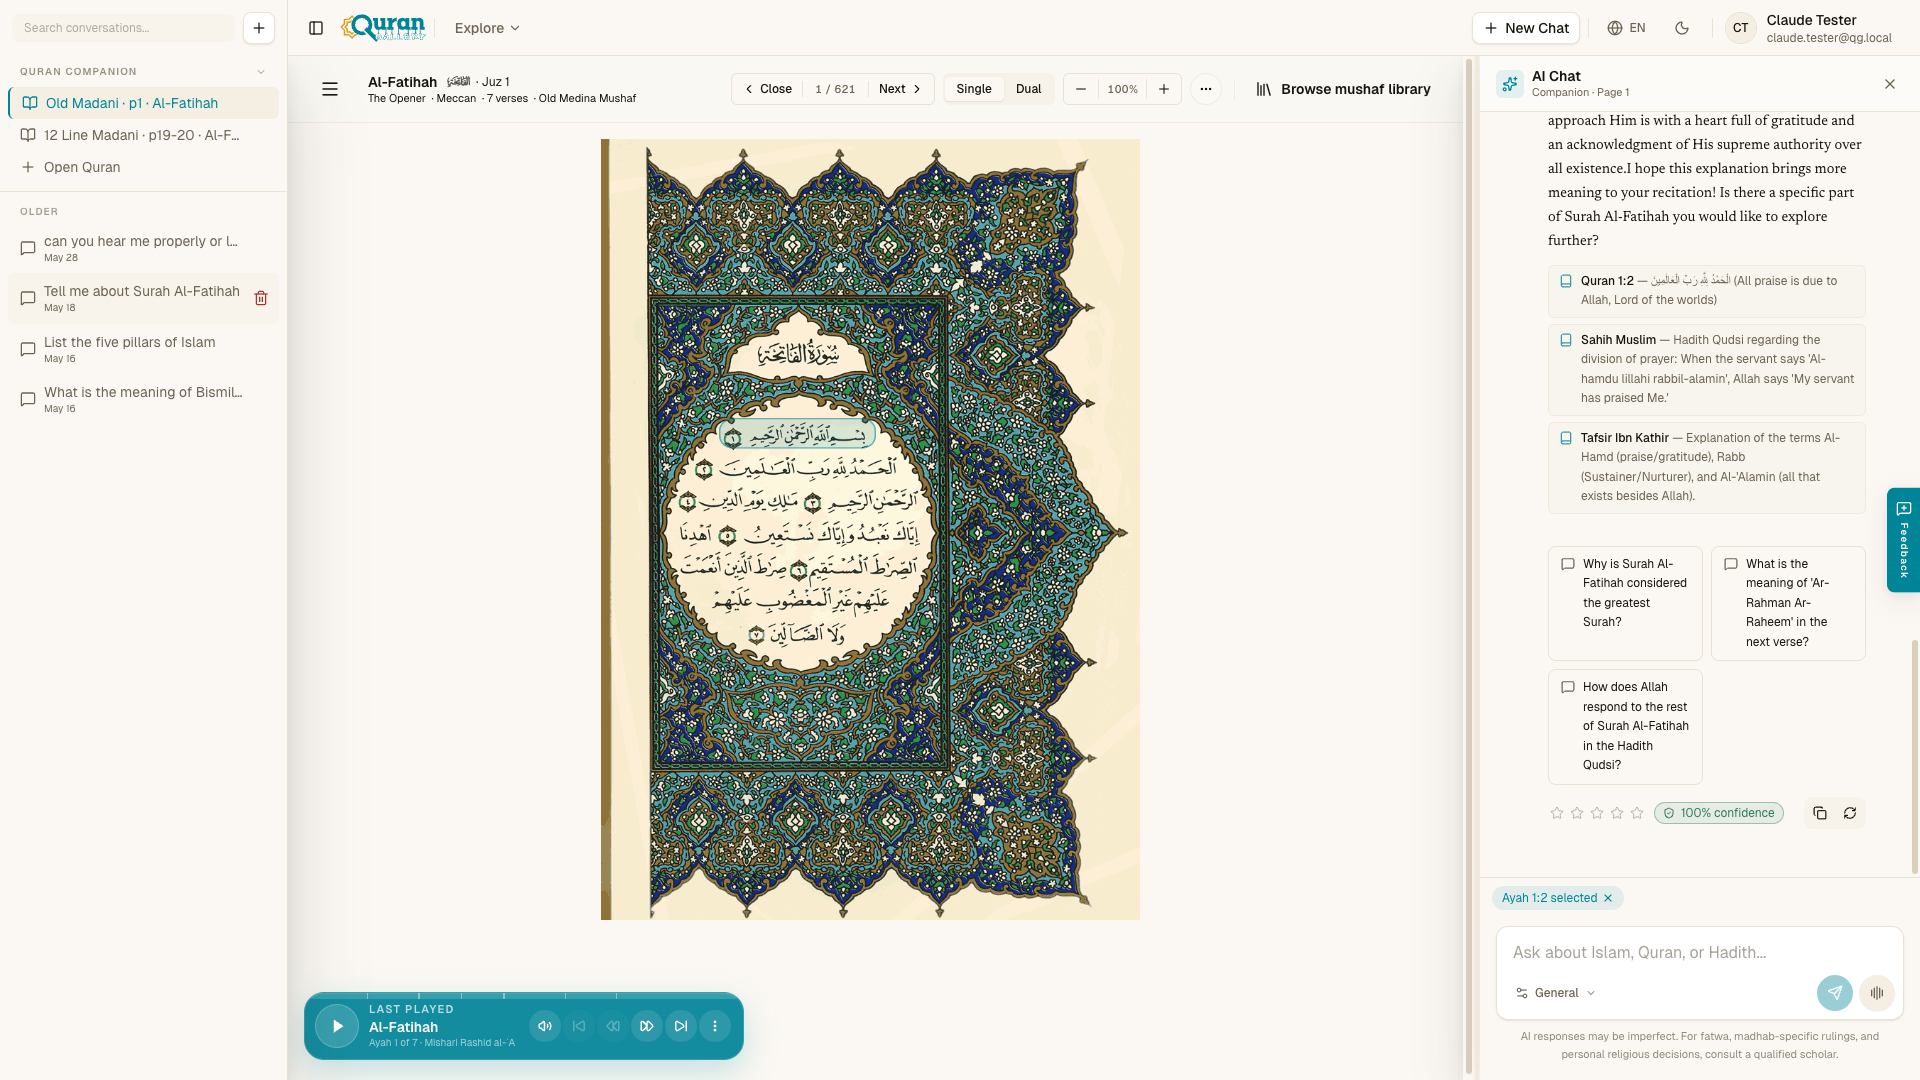 Search conversations...
QURAN COMPANION
Old Madani · p1 · Al-Fatihah
12 Line Madani · p19-20 · Al-F...
Open Quran
OLDER
can you hear me properly or l...
May 28
Tell me about Surah Al-Fatihah
May 18
List the five pillars of Islam
May 16
What is the meaning of Bismil...
May 16
Quran
Explore
New Chat
EN
CT
Claude Tester
claude.tester@qg.local
Al-Fatihah · Juz 1
The Opener · Meccan · 7 verses · Old Medina Mushaf
Close
1 / 621
Next
Single
Dual
100%
Browse mushaf library
سُورَةُ الفَاتِحَةِ
بِسْمِ ٱللَّهِ ٱلرَّحْمَٰنِ ٱلرَّحِيمِ ١
ٱلْحَمْدُ لِلَّهِ رَبِّ ٱلْعَٰلَمِينَ ٢
ٱلرَّحْمَٰنِ ٱلرَّحِيمِ ٣ مَٰلِكِ يَوْمِ ٱلدِّينِ ٤
إِيَّاكَ نَعْبُدُ وَإِيَّاكَ نَسْتَعِينُ ٥ ٱهْدِنَا
ٱلصِّرَٰطَ ٱلْمُسْتَقِيمَ ٦ صِرَٰطَ ٱلَّذِينَ أَنْعَمْتَ
عَلَيْهِمْ غَيْرِ ٱلْمَغْضُوبِ عَلَيْهِمْ
وَلَا ٱلضَّآلِّينَ ٧
LAST PLAYED
Al-Fatihah
Ayah 1 of 7 · Mishari Rashid al-ʿA
AI Chat
Companion · Page 1
approach Him is with a heart full of gratitude and
an acknowledgment of His supreme authority over
all existence.I hope this explanation brings more
meaning to your recitation! Is there a specific part
of Surah Al-Fatihah you would like to explore
further?
Quran 1:2 — الْحَمْدُ لِلَّهِ رَبِّ الْعَالَمِينَ (All praise is due to
Allah, Lord of the worlds)
Sahih Muslim — Hadith Qudsi regarding the
division of prayer: When the servant says 'Al-
hamdu lillahi rabbil-alamin', Allah says 'My servant
has praised Me.'
Tafsir Ibn Kathir — Explanation of the terms Al-
Hamd (praise/gratitude), Rabb
(Sustainer/Nurturer), and Al-'Alamin (all that
exists besides Allah).
Why is Surah Al-
Fatihah considered
the greatest
Surah?
What is the
meaning of 'Ar-
Rahman Ar-
Raheem' in the
next verse?
How does Allah
respond to the rest
of Surah Al-Fatihah
in the Hadith
Qudsi?
100% confidence
Feedback
Ayah 1:2 selected
Ask about Islam, Quran, or Hadith...
General
AI responses may be imperfect. For fatwa, madhab-specific rulings, and
personal religious decisions, consult a qualified scholar.